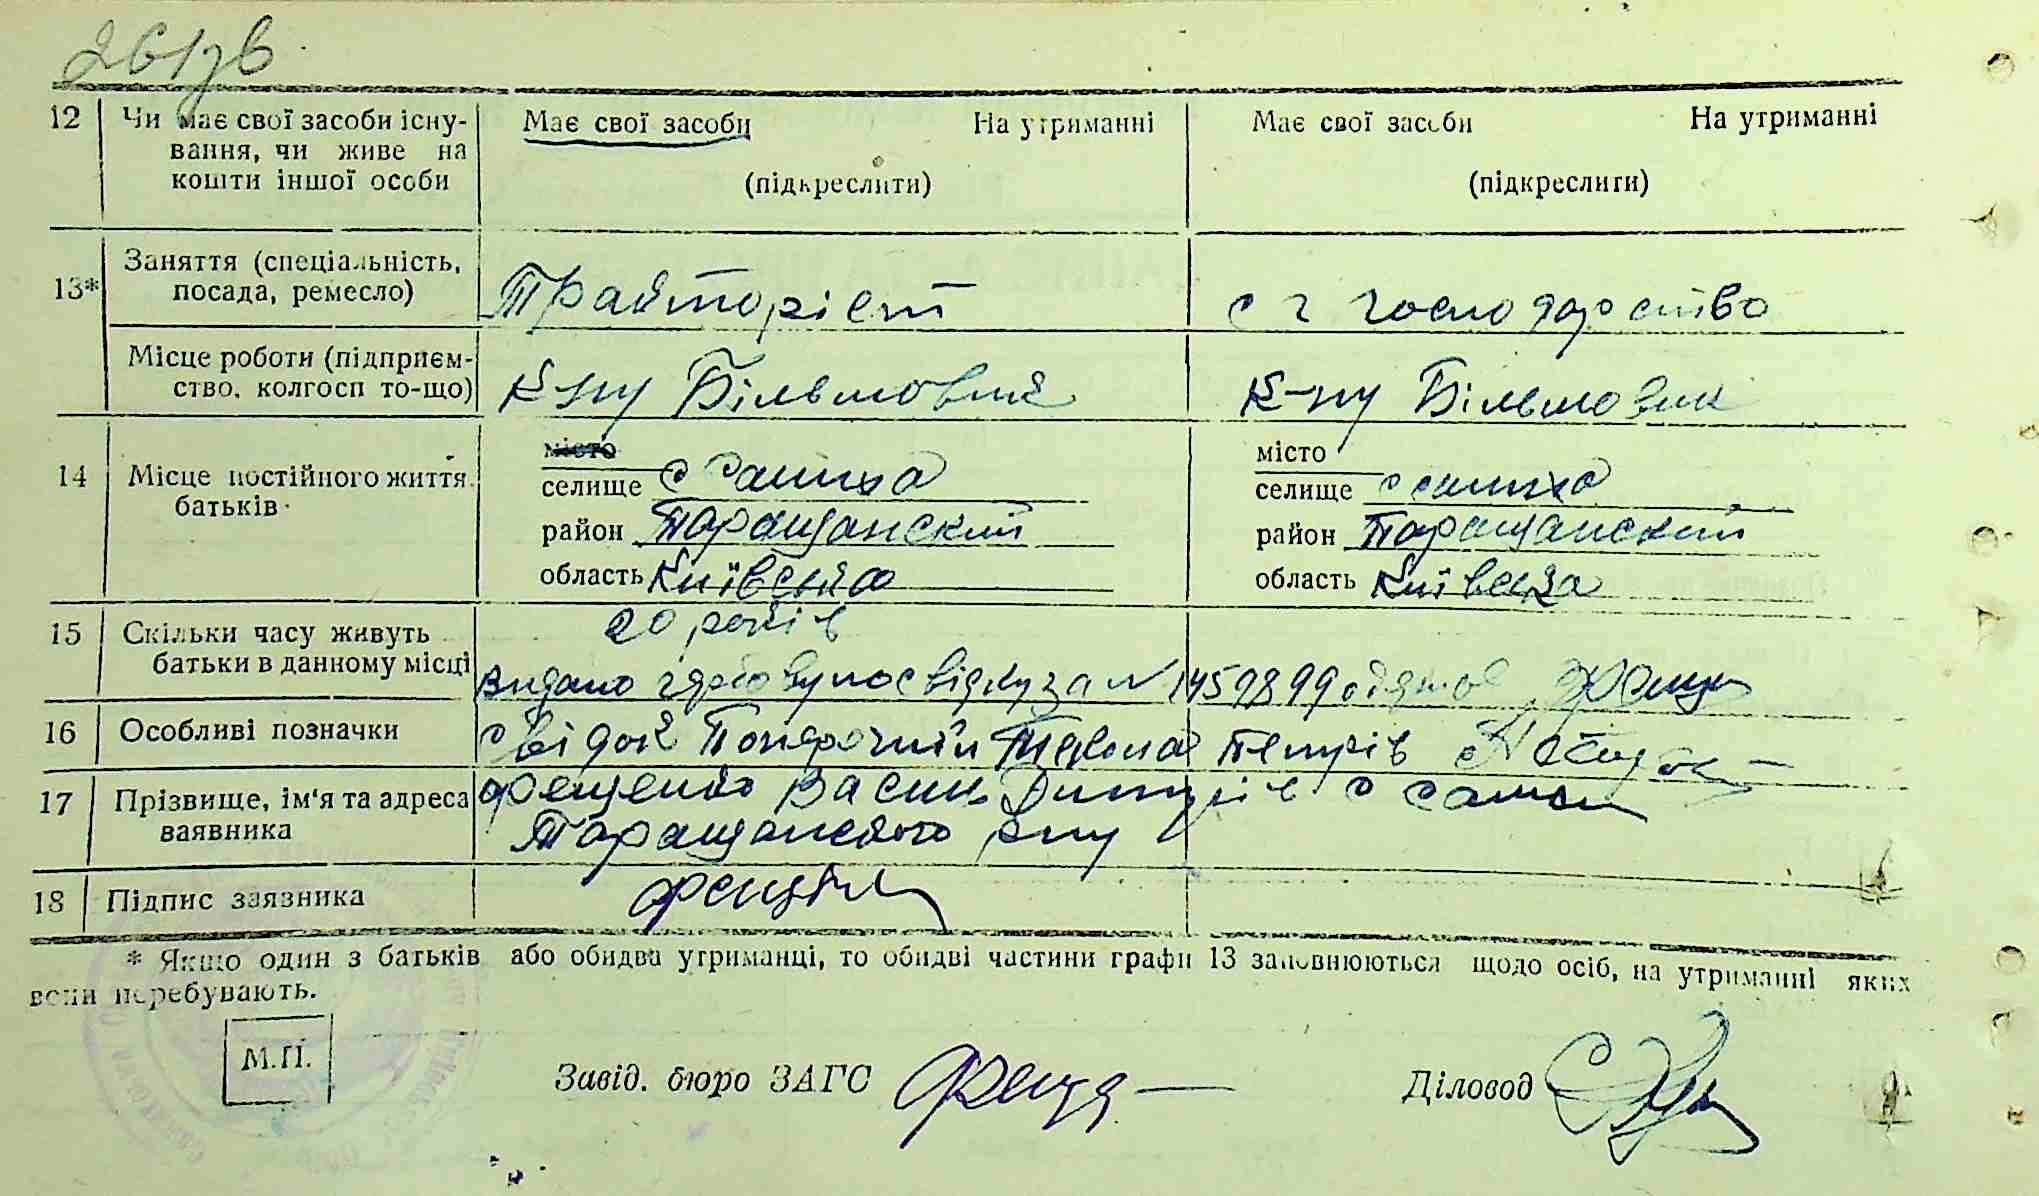 12 Чи має свої засоби існу-
вання, чи живе на
кошти іншої особи
Має свої засоби На утриманні
(підкреслити)
Має свої засоби На утриманні
(підкреслити)
13* Заняття (спеціальність,
посада, ремесло)
Трактористі
с г господарство
Місце роботи (підприєм-
ство, колгосп то-що)
К-пу Більшовик
К-пу Більшовик
14 Місце постійного життя
батьків
місто
селище
район Таращанский
область Київська
місто
селище
район Таращанский
область Київська
15 Скільки часу живуть
батьки в данному місці
20 років
Видано за N 1459899
16 Особливі позначки
свідок Петрів
17 Прізвище, ім'я та адреса
заявника
Фещенко Василь с
Таращанского р-ну
18 Підпис заявника
* Якщо один з батьків або обидва утриманці, то обидві частини графи 13 заповнюються щодо осіб, на утриманні яких
вони перебувають.
М.П.
Завід. бюро ЗАГС
Діловод